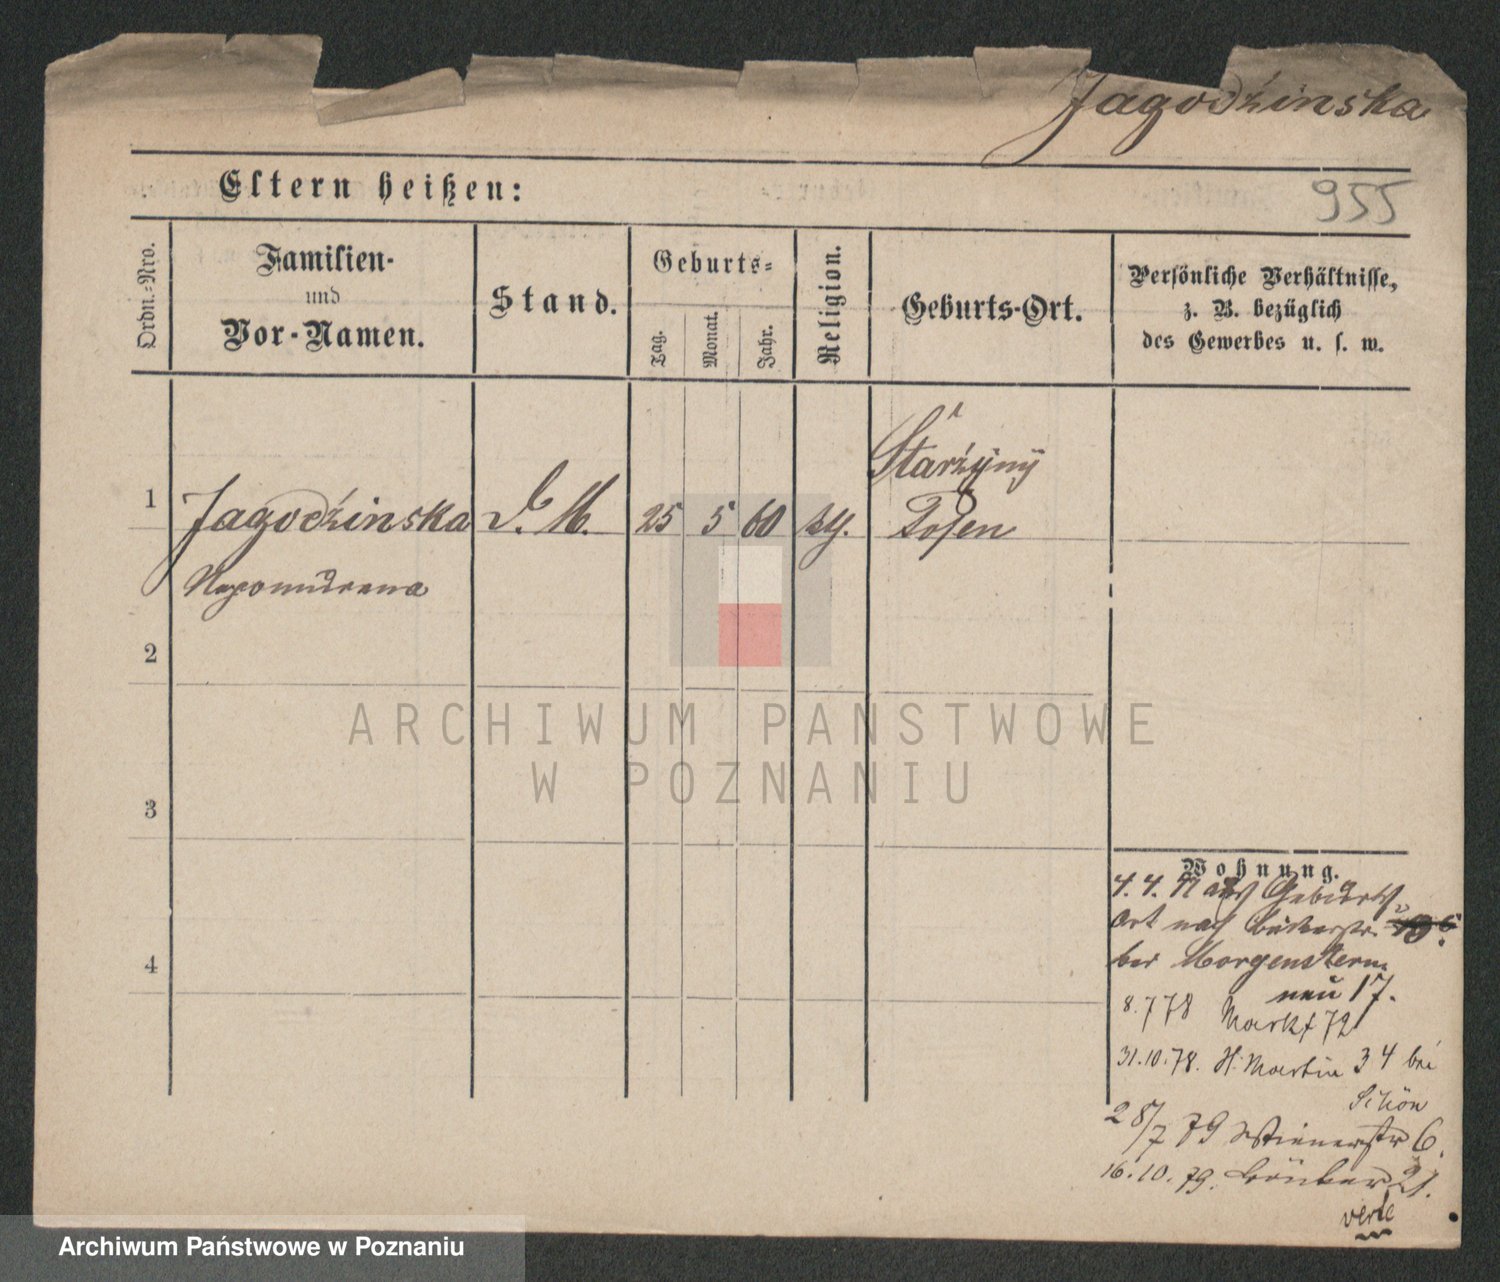 Jagodźinska
955
Eltern heißen:
Ordn.-Nro.
Familien-
und
Vor-Namen.
Stand.
Geburts-
Tag.
Monat.
Jahr.
Religion.
Geburts-Ort.
Persönliche Verhältnisse,
z. B. bezüglich
des Gewerbes u. s. w.
1
Jagodźinska
D. M.
25
5
60
kth.
Staržyny
Posen
Nepomucena
2
3
4
Wohnung.
4. 4. auf Geburts
Ort nach
bei Morgenstern
neu 17.
8. 7 78 Markt 72
31. 10. 78. St. Martin 34 bei
Schön
28/7 79 Wienerstr 6.
16. 10. 79. 21.
verte
ARCHIWUM PAŃSTWOWE
W POZNANIU
Archiwum Państwowe w Poznaniu